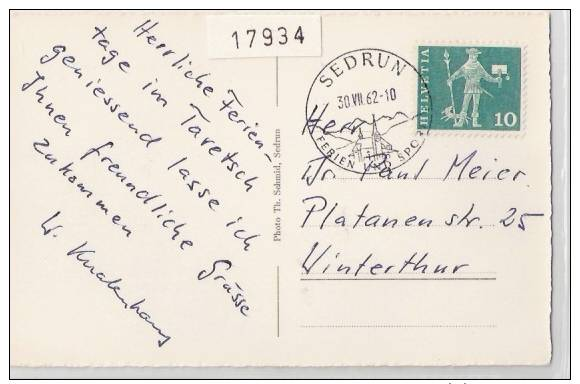 Herrliche Ferien-
tage im Tavetsch
geniessend lasse ich
Ihnen freundliche Grüsse
zukommen
W.
17934
Photo Th. Schmid, Sedrun
SEDRUN
30.VII.62-10
FERIEN UND SPORT
HELVETIA
10
Herr
Dr. Paul Meier
Platanenstr. 25
Winterthur